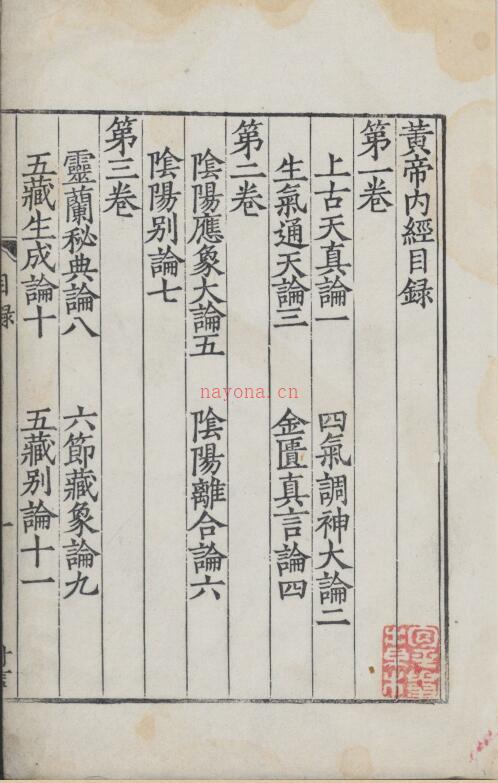 黃帝內經目録
第一卷
上古天真論一 四氣調神大論二
生氣通天論三 金匱真言論四
第二卷
陰陽應象大論五 陰陽離合論六
陰陽别論七
第三卷
靈蘭秘典論八 六節藏象論九
五藏生成論十 五藏别論十一
目録 一
nayona.cn